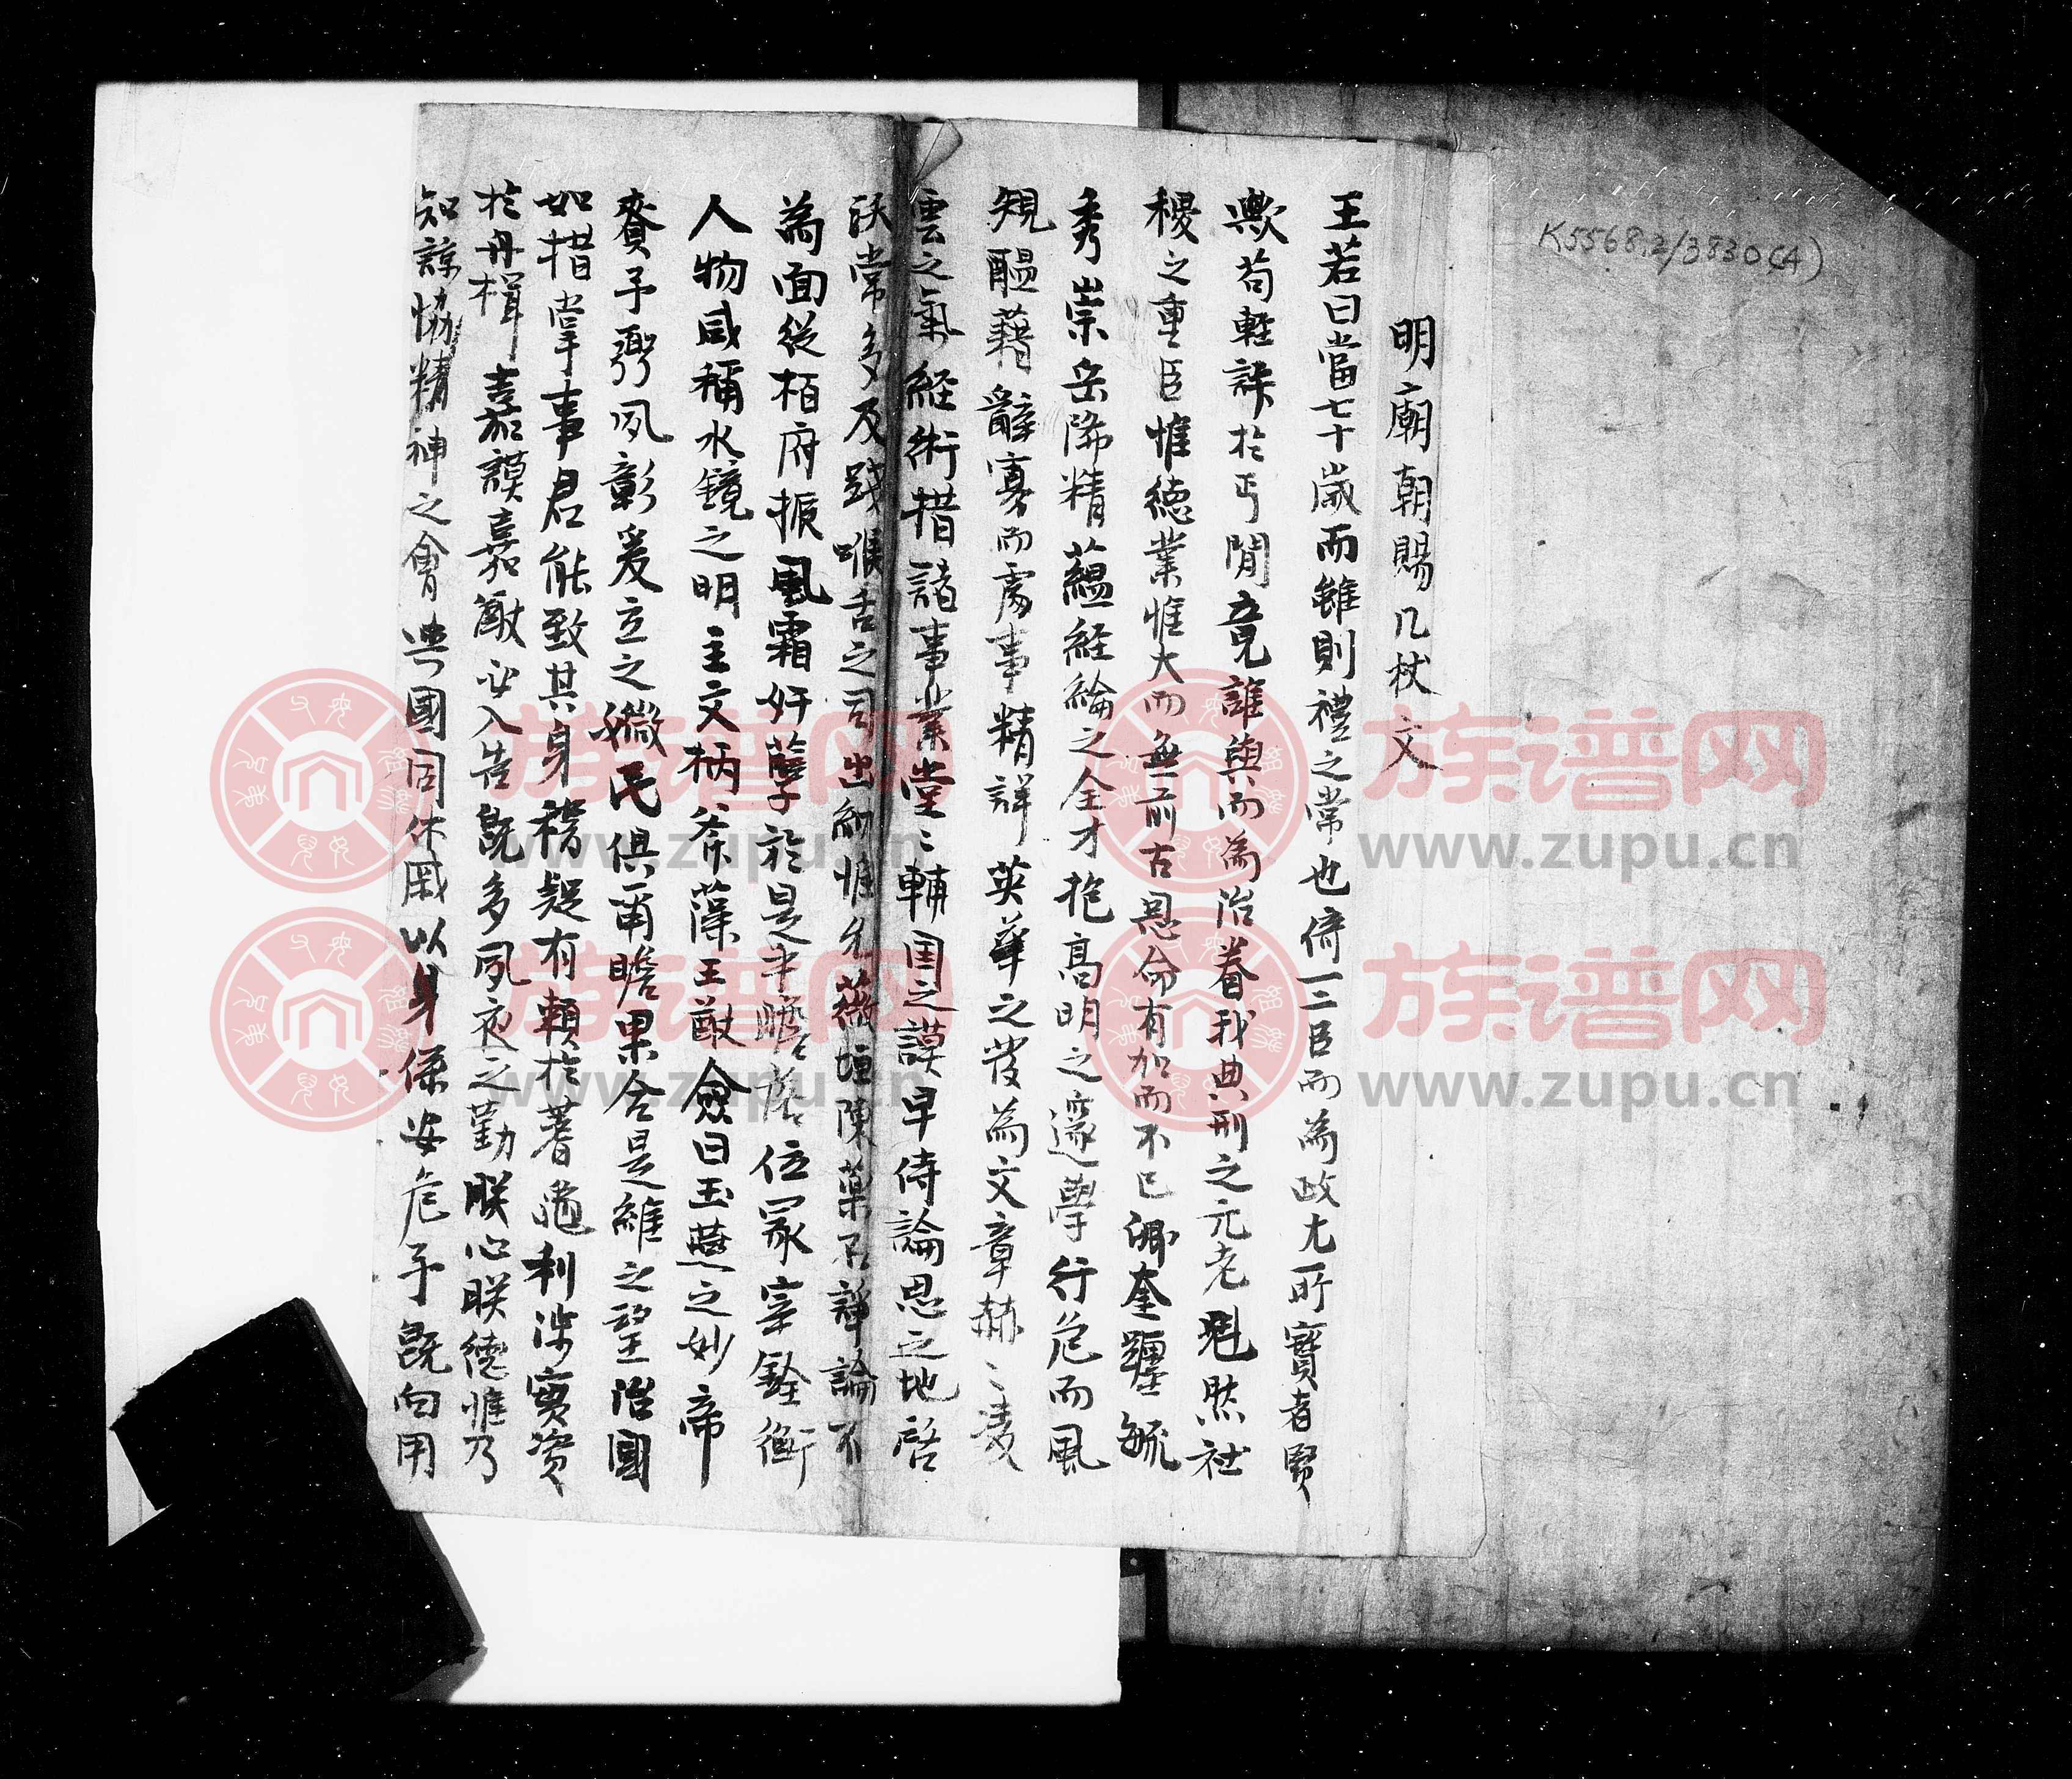 K5568.2/3830(4)
明廟朝賜几杖文
王若曰當七十歲而雖則禮之常也倚一二臣而為政尤所寶者賢
歟苟輕許於丐閒竟誰與而為治眷我典刑之元老魁然社
稷之重臣惟德業惟大而無前古恩命有加而不已卿奎躔毓
秀崇岳降精蘊經綸之全才抱高明之邃學行危而風
規醞藉辭寡而處事精詳英華之發為文章赫〻凌
雲之氣經術措諸事業堂〻輔国之謨早侍論思之地啓
沃常多及踐喉舌之司出納惟允薇垣陳藥石諍論不
為面從栢府振風霜奸孽於是半膽落位冢宰銓衡
人物咸稱水鏡之明主文柄黼藻王猷僉曰玉燕之妙帝
賚予弼夙彰爰立之徵民俱爾瞻果合是維之望治國
如指掌事君能致其身稽疑有賴於蓍龜利涉實資
於舟楫嘉謨嘉猷必入告既多夙夜之勤朕心朕德惟乃
知諒恊精神之會與國同休戚以身係安危予既向用
族谱网
www.zupu.cn
族谱网
www.zupu.cn
族谱网
www.zupu.cn
族谱网
www.zupu.cn